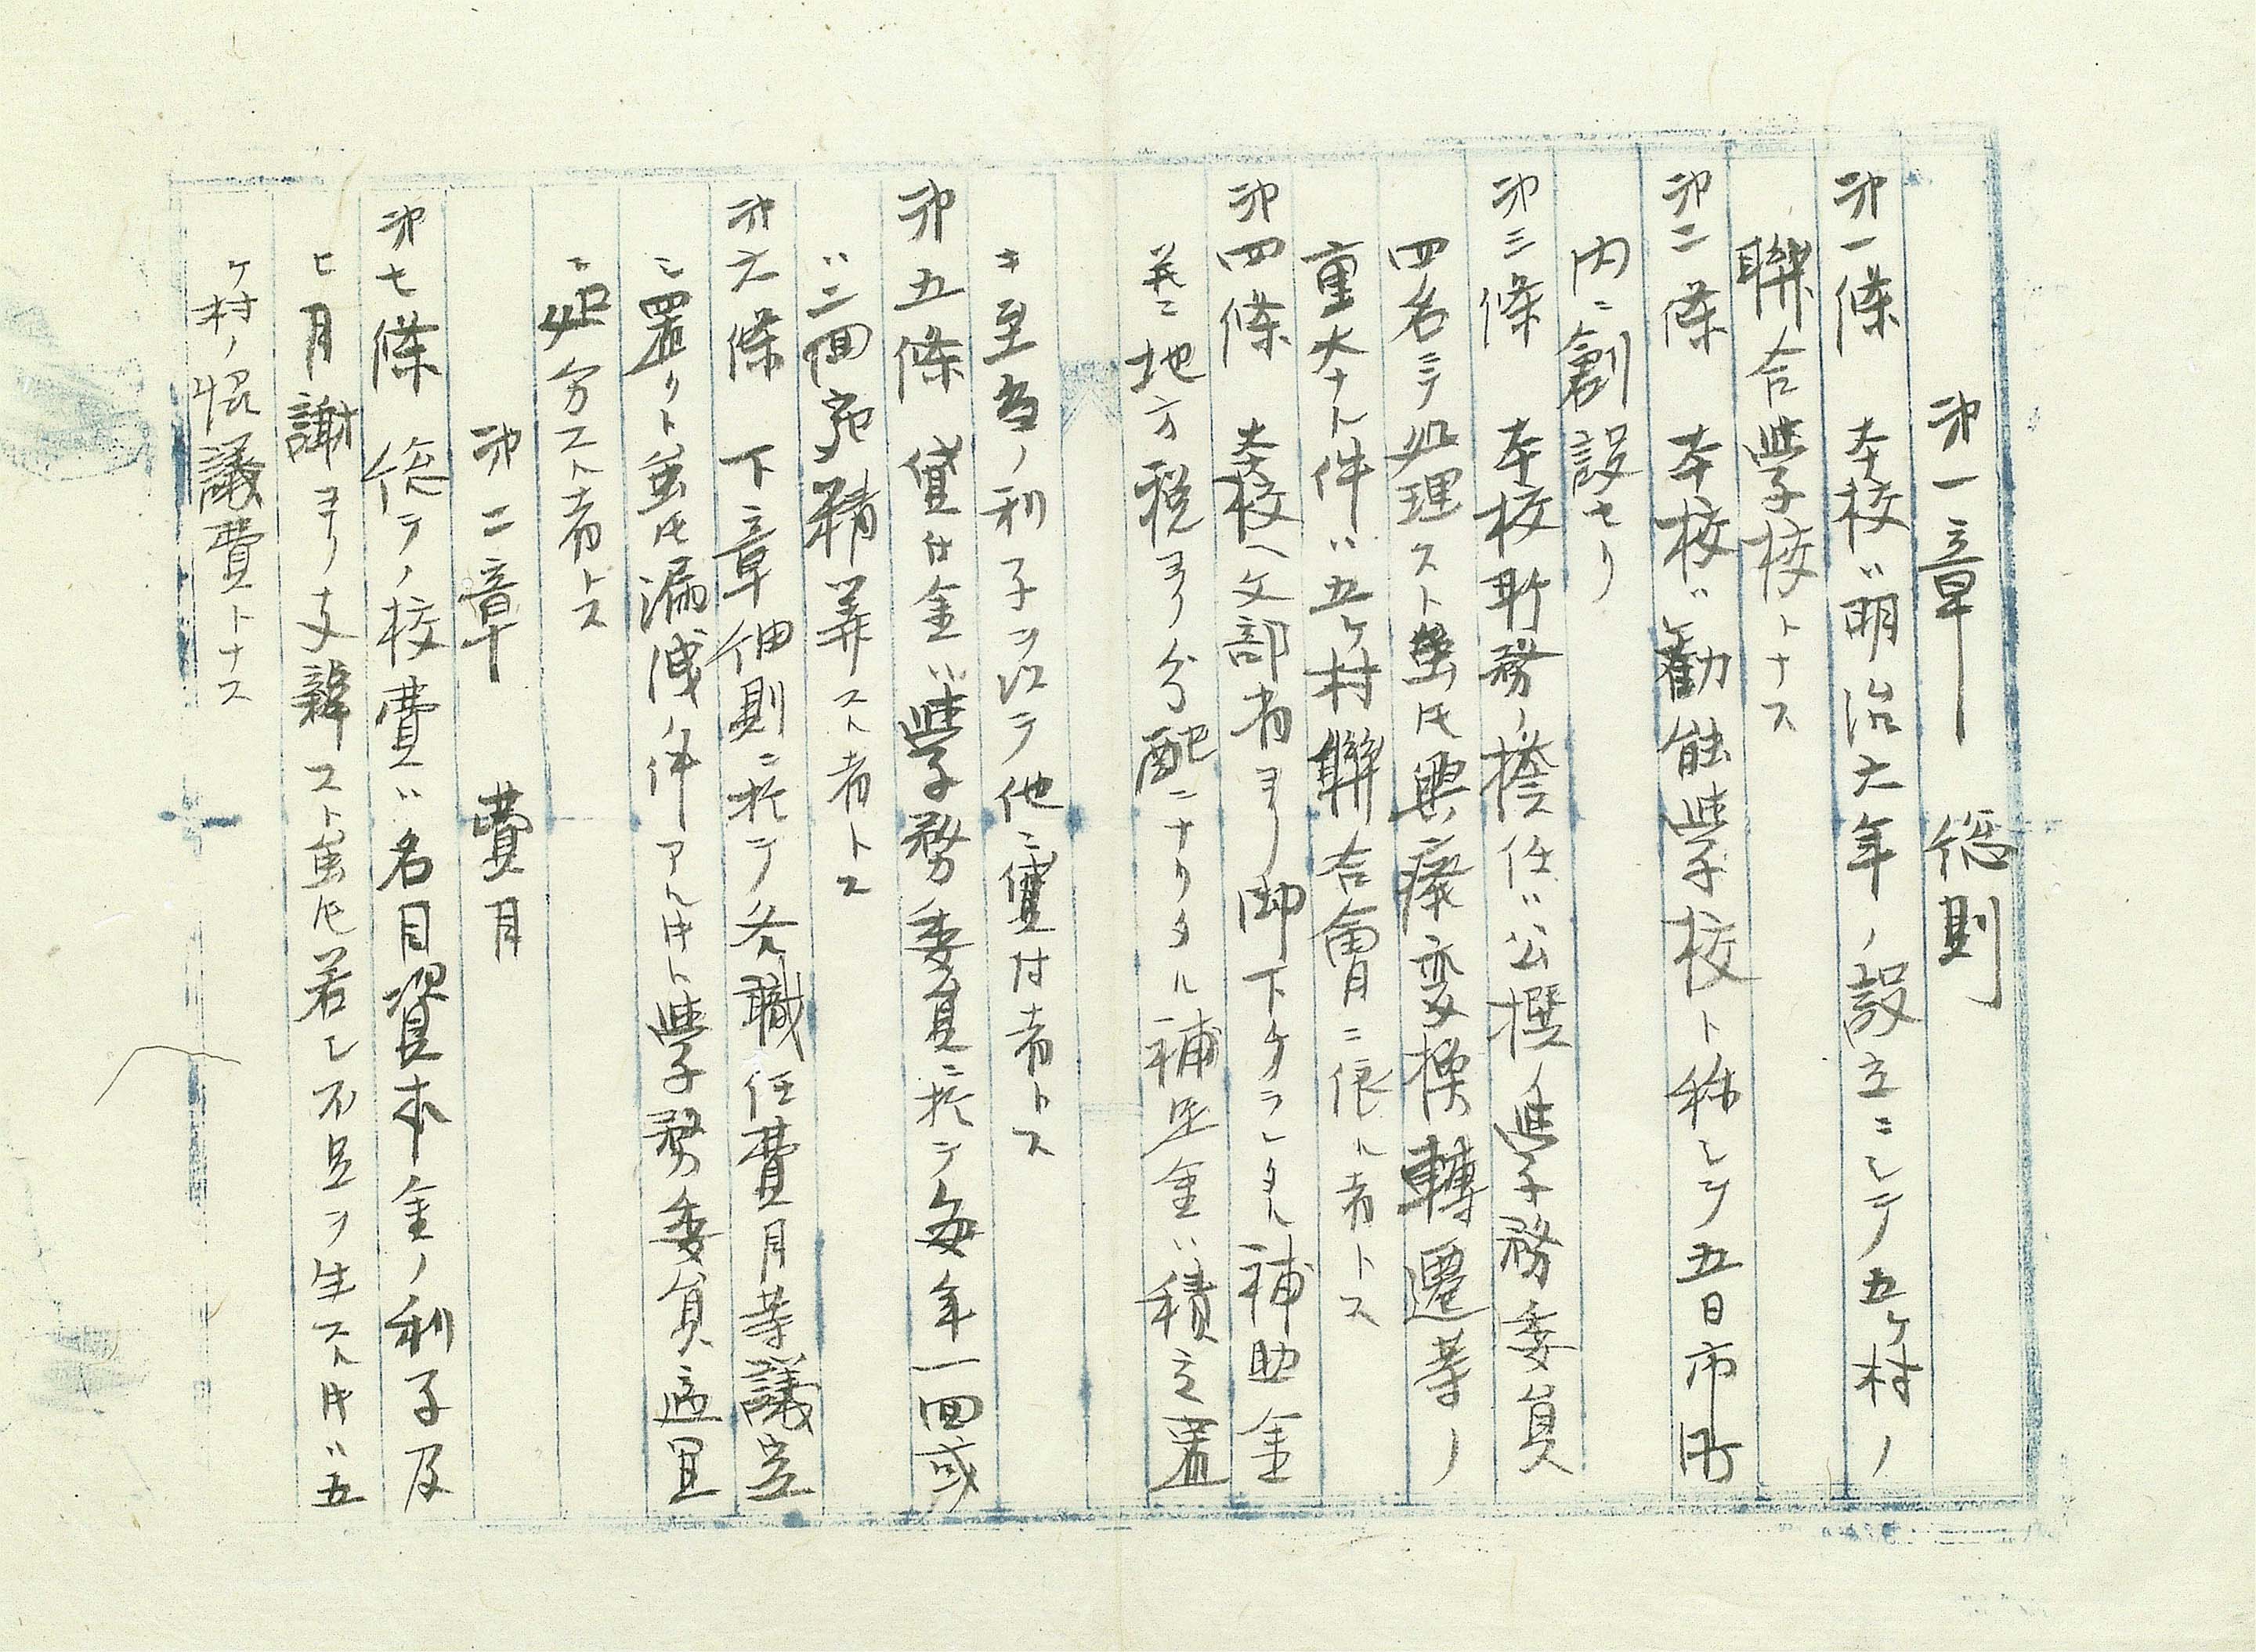 第一章　総則
第一條　本校ハ明治六年ノ設立ニシテ五ヶ村ノ
聯合學校トナス
第二條　本校ハ勸能學校ト称シテ五日市町
内ニ創設セリ
第三條　本校所務ノ擔任ハ公撰ノ學務委員
四名ミテ処理スト虽𪜈興癈変換轉遷等ノ
重大ナル件ハ五ヶ村聯合會ニ依ル者トス
第四條　本校ヘ文部省ヨリ御下ケラレタル補助金
并ニ地方税ヨリ分配ニナリタル補足金ハ積立置
キ至当ノ利子ヲ以テ他ニ貸付者トス
第五條　貸付金ハ學務委員ニ於テ毎年一回或
ハ二回宛精算スル者トス
第六條　下章細則ニ於テ各職任費用等議定
シ置クト虽𪜈漏洩ノ件アル時ハ學務委員適宜
ニ処分スル者トス
第二章　費用
第七條　総テノ校費ハ名目資本金ノ利子及
ヒ月謝ヨリ支辨スト虽𪜈若シ不足ヲ生スル時ハ五
ヶ村ノ協議費トナス